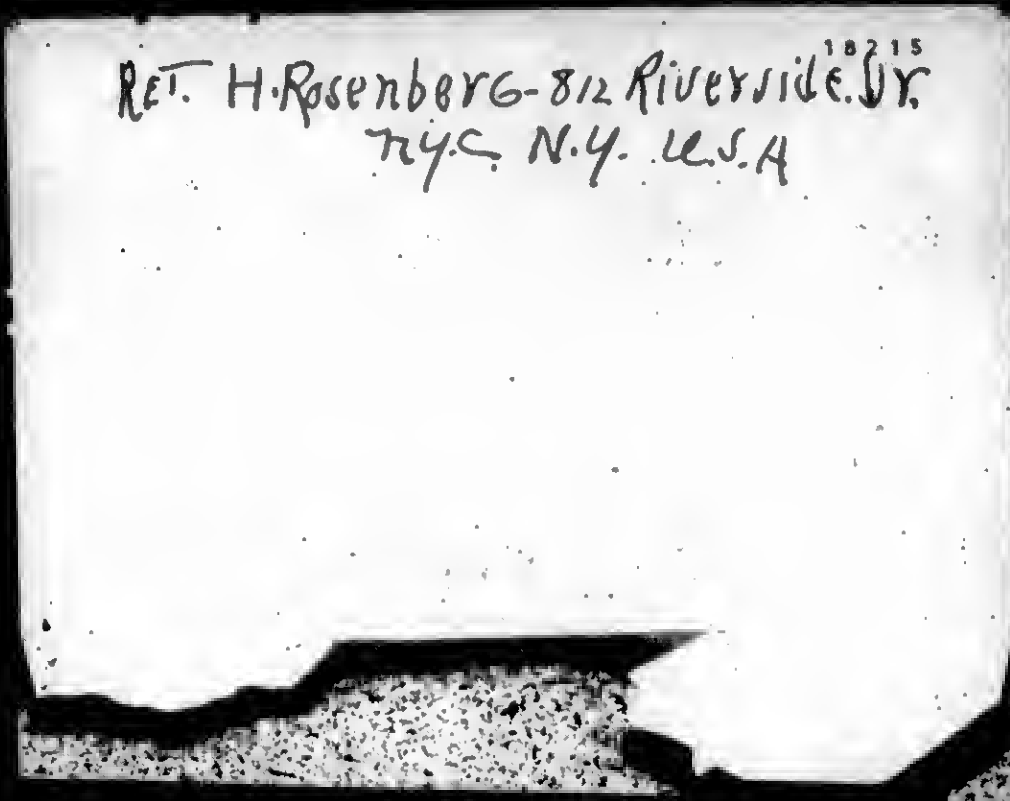 18215
RET. H. RosenberG - 812 Riverside. Dr.
n.y.C. N.Y. U.S.A